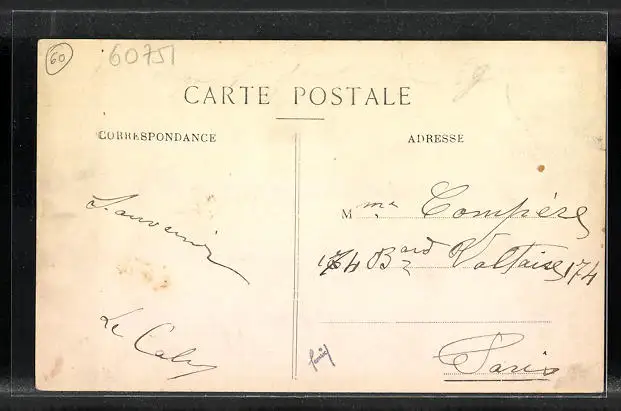 60
60751
CARTE POSTALE
CORRESPONDANCE
ADRESSE
Souvenir
Mme Compère
174 Bard Voltaire 174
Le Caby
Paris